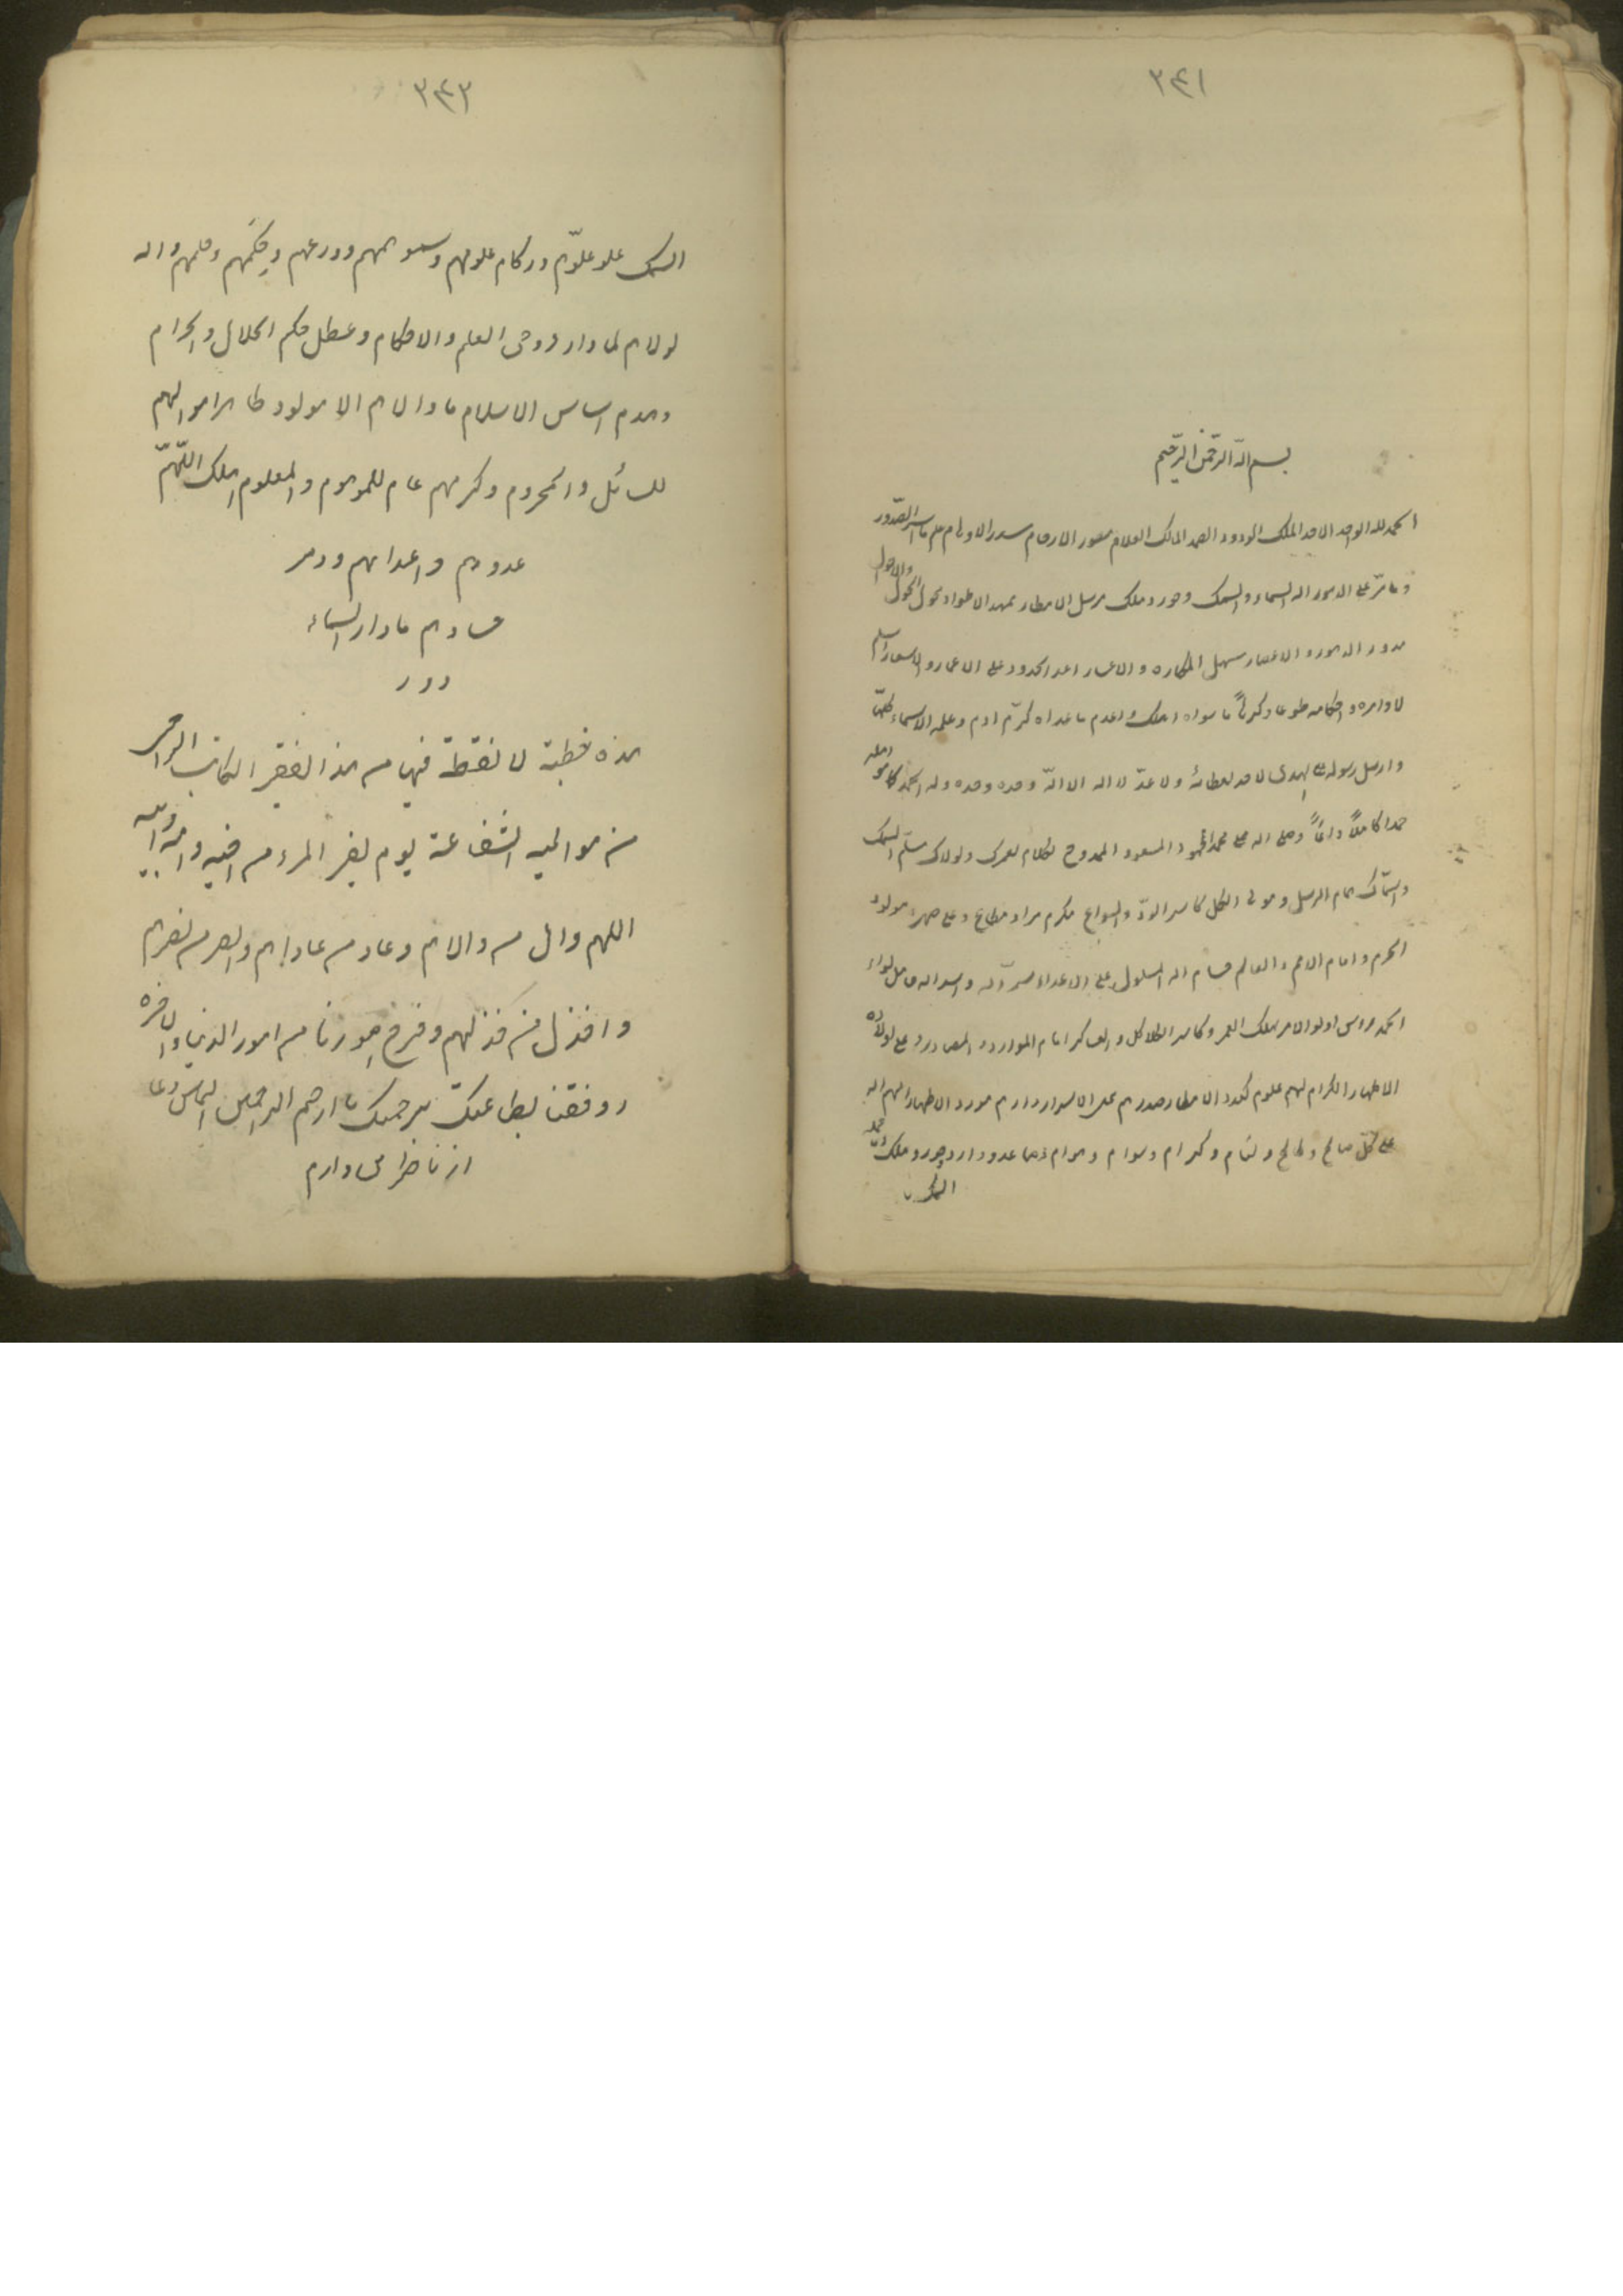 ٣٤١
بسم الله الرحمن الرحيم
الحمد لله الواحد الاحد الملك الودود الصمد المالك العلام مصور الارحام علم ما اسر الصدور
وما مر على الدهور اله السماء والسمك وحور وملك مرسل الامطار ممهد الاطواد محول الحول والاحوال
مدور الدهور والاعصار مسهل المكاره والاعسار الحدود على الاعمار والاسعار اسلم
لاوامره واحكامه طوعا وكرهاً ما سواه اهلك واعدم ما عداه كرّم ادم وعلمه الاسماء كلها
وارسل رسوله على الهدى لا حد لعطائه ولا عدّ لا اله الا الله وحده وحده وله الحمد كما هو اهله
حمدا كاملاً وصلى الله على محمد المحمود المسعود الممدوح لكلام لعمرك ولولاك سلّم السمك
والسماك امام الرسل ومولى الكل كاسر الودّ والسواع مكرم مراد مطاع وعلى صهره مولود
الحرم وامام الامم والعالم حسام الله المسلول على الاعداء واسد اله حامل لواء
الحمد اولو الامر مهلك العمرو كاسر العساكر امام الموارد والمصادر وعلى اولاده
الاطهار الكرام لهم علوم كعدد الامطار صدورهم دارهم مورد الاطهار
على كل صالح وطالح ولئام وكرام وسوام وهوام
السمك
٣٤٢
السمك علو علوّهم وركام علومهم وسمو وورعهم وحكمهم وحلمهم واله
لولاهم لما دار رحى العلم والاحكام وعطل حكم الحلال والحرام
وهدم اساس الاسلام ما والاهم الا مولود طاهر اموالهم
للسائل والمحروم وكرمهم عام للموهوم والمعلوم اللهمّ اهلك
عدوهم واعدائهم ودمر
حسادهم ما دار السماء
ودر
هذه خطبة لا نقطة فيها من هذا الفقير الكاتب الراجى
من مواليه الشفاعة يوم يفر المرء من اخيه وامه وابيه
اللهم وال من والاهم وعاد من عاداهم وانصر من نصرهم
واخذل من خذلهم وفرج امورنا من امور الدنيا والاخره
ووفقنا بطاعتك برحمتك يا ارحم الراحمين التماس دعا
از ناظرا دارم